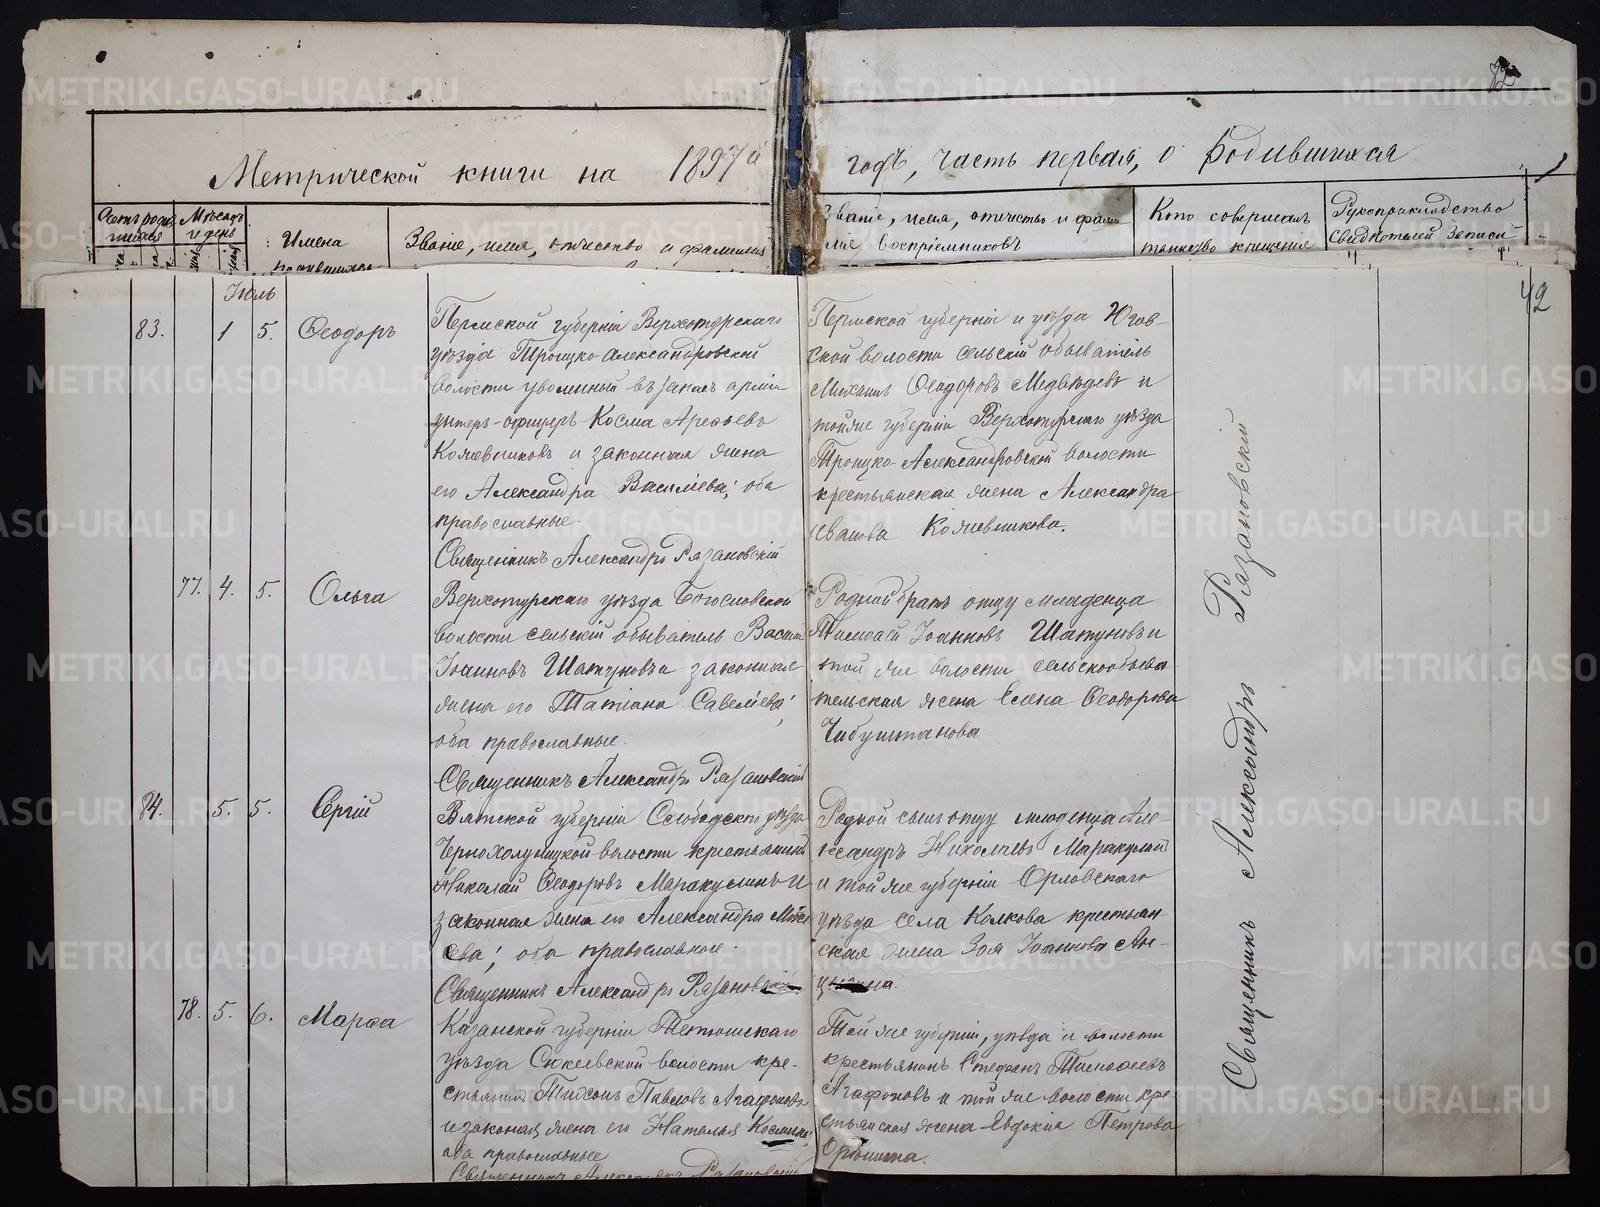 Метрической книги на 1897й
годъ, часть первая, о родившихся
Мѣсяцъ и день
Имена
Званіе, имя, отчество и фамилія
Званіе, имя, отчество и фами
лія воспріемниковъ
Кто совершалъ
таинство крещенія
Рукоприкладство
свидѣтелей записи
42
Іюль
83. 1 5. Ѳеодоръ
Пермской губерніи Верхотурскаго
уѣзда Троицко-Александровской
волости уволенный въ запасъ арміи
унтеръ-офицеръ Косма Арефьевъ
Кожевниковъ и законная жена
его Александра Василіева; оба
православные.
Священникъ Александръ Рязановскій
Пермской губерніи и уѣзда Югов-
ской волости сельскій обыватель
Михаилъ Ѳеодоровъ Медвѣдевъ и
той же губерніи Верхотурскаго уѣзда
Троицко-Александровской волости
крестьянская жена Александра
Иванова Кожевникова.
77. 4. 5. Ольга
Верхотурскаго уѣзда Богословской
волости сельскій обыватель Васил
Іоанновъ Шатуновъ и законная
жена его Татіана Савеліева;
оба православные.
Священникъ Александръ Рязановскій
Родной братъ отцу младенца
Тимоѳей Іоанновъ Шатуновъ и
той же волости сельскообыва
тельская жена Елена Ѳеодорова
Чибуштанова
84. 5. 5. Сергій
Вятской губерніи Слободского уѣзда
Чернохолуницкой волости крестьянинъ
Николай Ѳеодоровъ Маракулинъ и
законная жена его Александра Моѵсе
ева; оба православные.
Священникъ Александръ Рязановскій
Родной сынъ отцу младенца Але-
ксандръ Николаевъ Маракулин
и той же губерніи Орловскаго
уѣзда села Колкова крестьян-
ская жена Зоя Іоаннова
78. 5. 6. Марѳа
Казанской губерніи Тетюшскаго
уѣзда волости кре-
стьянинъ Павловъ Агафоновъ
и законная жена его Наталья Космина;
оба православные
Священникъ Александръ Рязановскій
Той же губерніи, уѣзда и волости
крестьянинъ Стефанъ Тимоѳеевъ
Агафоновъ и той же волости кре
стьянская жена Евдокія Петрова
Священникъ Александръ Рязановскій
METRIKI.GASO-URAL.RU